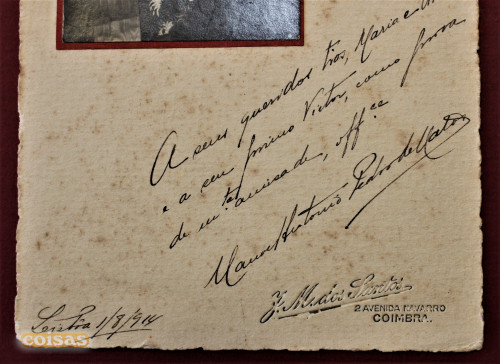 A seus queridos tios, Maria e
e a seu primo Victor, como prova
de m.ta amisade, off.ce
Manoel Antonio Pedro de Mattos
Coimbra 1/8/914
2 AVENIDA NAVARRO
COIMBRA.
coisas